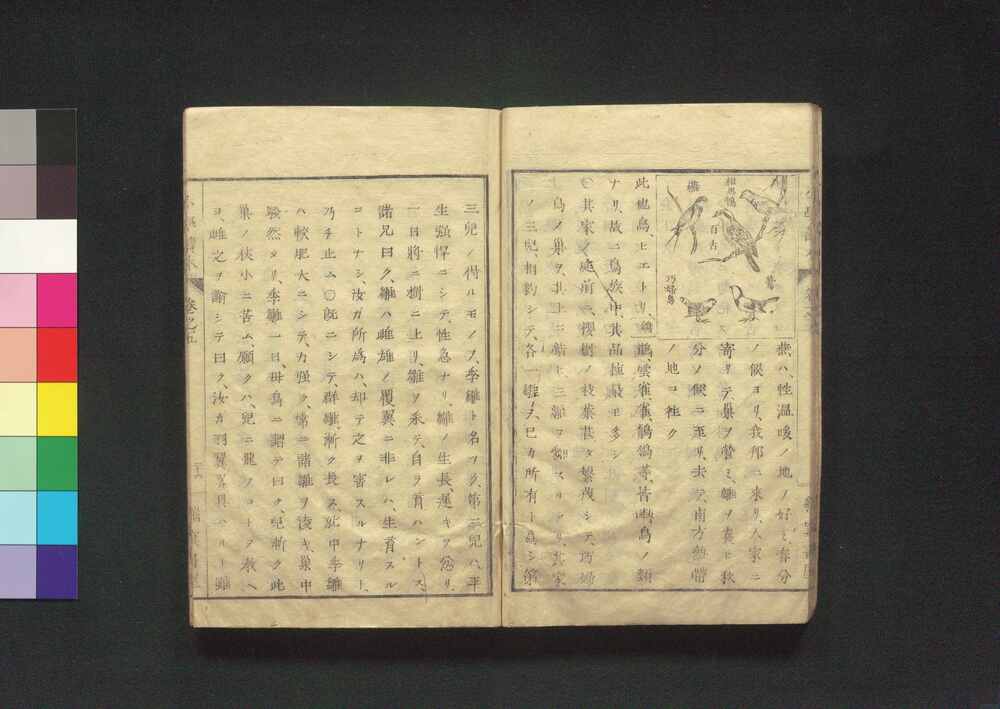 相思鳥
燕
百舌
鶯
巧婦鳥
燕ハ、性温暖ノ地ノ好ミ春分
ノ候ヨリ、我邦ニ来リ、人家ニ
寄リテ巣ヲ營ミ、雛ヲ養ヒ秋
分ノ候ニ至リ、去テ、南方熱帶
ノ地ニ往ク
此他鳥、ヒエトリ、鶺鴒、雲雀、雀、等、皆此鳥ノ類
ナリ、故ニ鳥族中、其品種最モ多シ
〇其家ノ庭前ニ、櫻樹ノ枝葉甚タ繁茂シテ、巧婦
鳥ノ巣ヲ、其上ニ結ヒ三雛ヲ
ノ三兒、相約シテ、各一雛ヲ、己カ所有ト爲シ第
三兒ノ得ルモノヲ、季雛ト名ツク、第二兒ハ、平
生強悍ニシテ、性急ナリ、雛ノ生長、遲キヲ忿リ、
一日將ニ樹ニ上リ、雛ヲ取テ、自ラ育ハントス、
諸兄曰ク、雛ハ雌雄ノ覆翼ニ非レハ、生育スル
コトナシ、汝ガ所爲ハ、却テ之ヲ害スルナリト、
乃チ止ム〇既ニシテ、群雛、漸ク長ス、就中季雛
ハ較肥大ニシテ、力強ク、常ニ諸雛ヲ凌キ、巣中
騒然タリ、季雛一日、母鳥ニ謂テ曰ク、兒漸ク此
巣ノ狭小ニ苦ム、願クハ、兒ニ飛ノコトヲ教ヘ
ヨ、雌之ヲ諭シテ曰ク、汝カ羽翼、具ハルト雖
卷之五